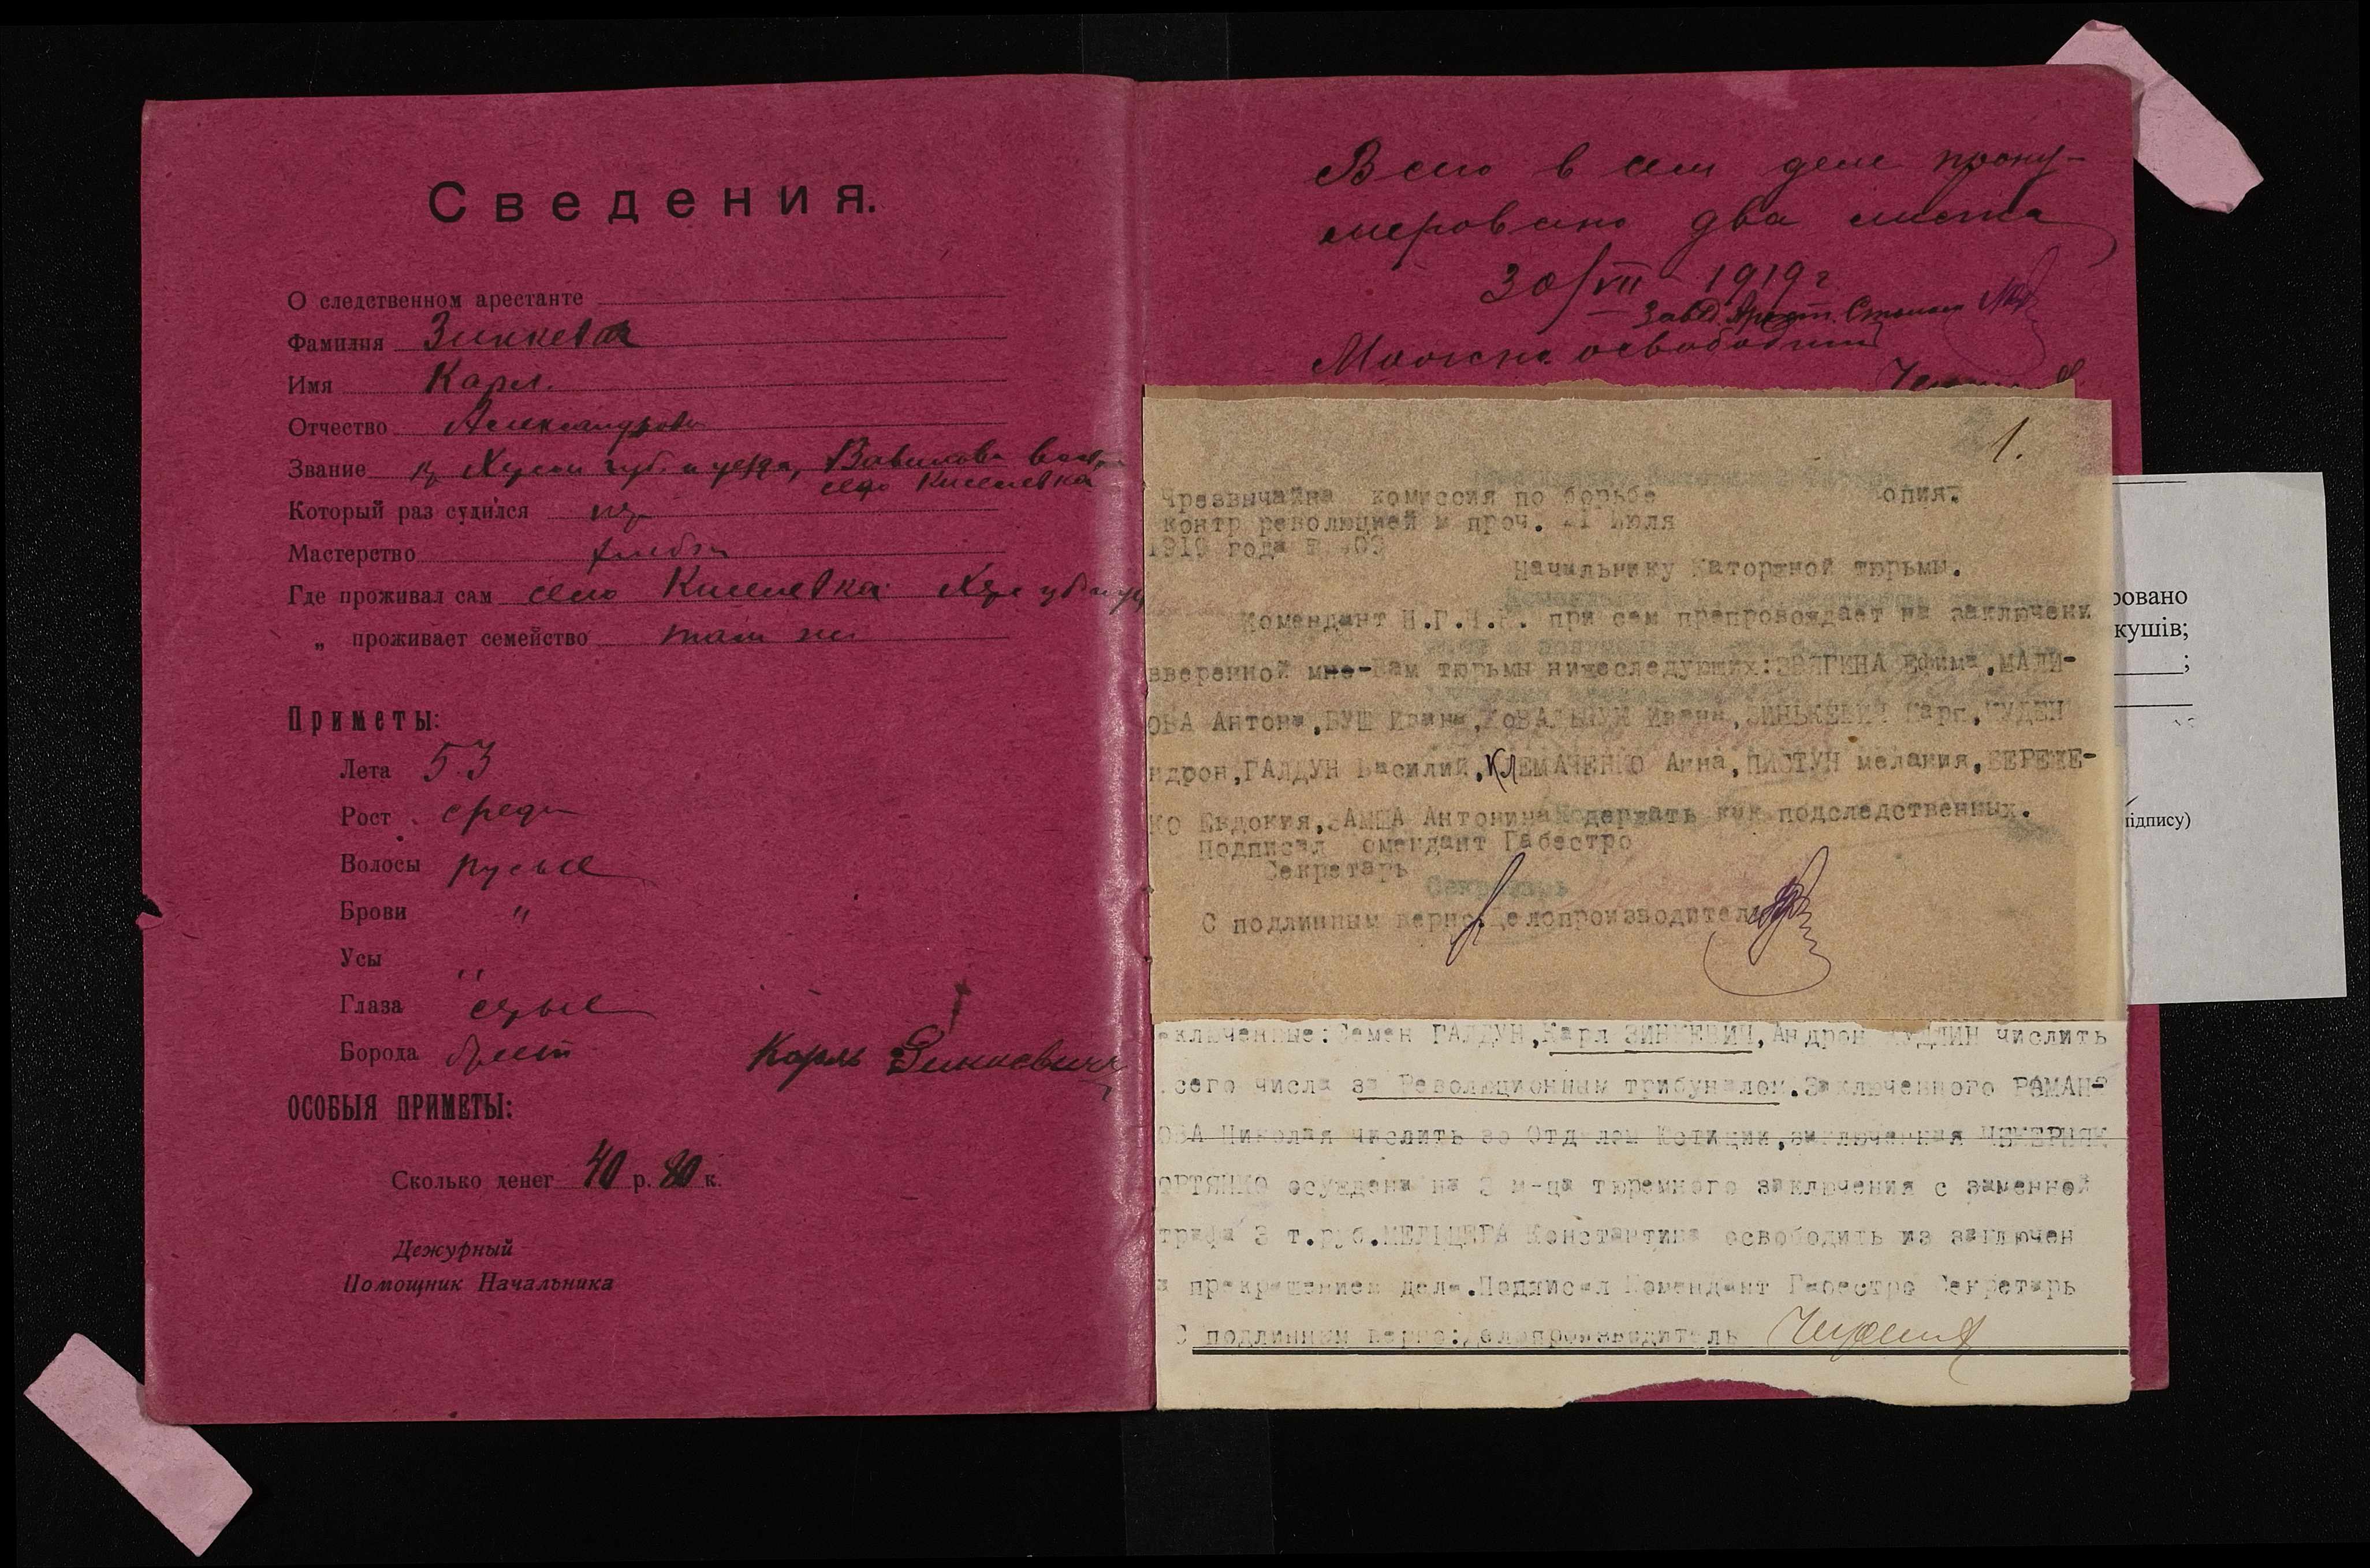 Сведения.
О следственном арестанте
Фамилия Зинкевич
Имя Карл.
Отчество Александров
Звание губ. и уезда,
село Киселевка
Который раз судился
Мастерство
Где проживал сам село Киселевка
„ проживает семейство там же
Приметы:
Лета 53
Рост средн
Волосы русые
Брови "
Усы "
Глаза серые
Борода бреет
Карль Зинкевичъ
ОСОБЫЯ ПРИМЕТЫ:
Сколько денег 40 р. 80 к.
Дежурный
Помощник Начальника
Всего в сем деле прону-
меровано два листа
30/VII – 1919 г
Завед. Арест. Столом
Можно освободить
1.
Чрезвычайна комиссия по борьбе опия.
контр революцией и проч. 21 Июля
1919 года
Начальнику Каторжной тюрьмы.
Комендант Н.Г.Ч.К. при сем препровождает на заключени
вверенной мне-Вам тюрьмы нижеследующих: ЗВЯГИНА Ефима, МАЛИ-
ОВА Антона, БУШ Ивана, КОВАЛЬЧУК Ивана, ЗИНЬКЕВИЧ Карп, КУДЕН
ндрон, ГАЛДУН Василий, КЛЕМАЧЕНКО Анна, ПИСТУН мелания, БЕРЕЖЕ-
КО Евдокия, ЗАМША Антонина содержать как подследственных.
Подписал омендант Габестро
Секретарь
С подлинным верно. Делопроизводитель
аключенные: Семен ГАЛДУН, Карл ЗИНКЕВИЧ, Андрон КУДЛИН числить
сего числа за Революционным трибуналом. Заключенного РОМАН-
ОВА Николая числить за Отделом Юстиции, заключенная
ОРТЯНКО осуждена на 3 м-ца тюремного заключения с заменной
трафа 3 т. руб. МЕЛЬЦЕРА Константина освободить из заключен
а прекращением дела. Подписал Комендант Габестро Секретарь
С подлинным верно: делопроизводитель
ровано
кушів;
;
ідпису)